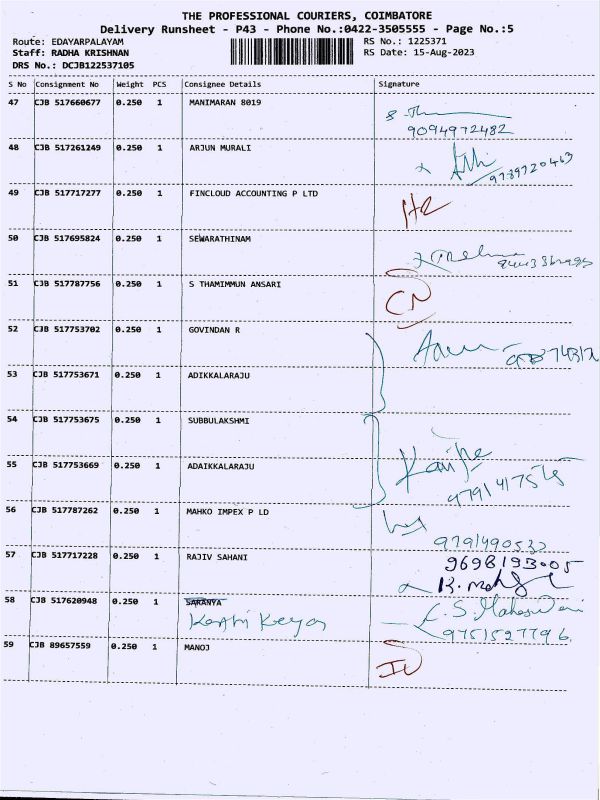 THE PROFESSIONAL COURIERS, COIMBATORE
Delivery Runsheet - P43 - Phone No.:0422-3505555 - Page No.:5
Route: EDAYARPALAYAM
RS No.: 1225371
Staff: RADHA KRISHNAN
RS Date: 15-Aug-2023
DRS No.: DCJB122537105
S No Consignment No Weight PCS Consignee Details Signature
47 CJB 517660677 0.250 1 MANIMARAN 8019
9094972482
48 CJB 517261249 0.250 1 ARJUN MURALI
9789720463
49 CJB 517717277 0.250 1 FINCLOUD ACCOUNTING P LTD
50 CJB 517695824 0.250 1 SEWARATHINAM
51 CJB 517787756 0.250 1 S THAMIMMUN ANSARI
CN
52 CJB 517753702 0.250 1 GOVINDAN R
53 CJB 517753671 0.250 1 ADIKKALARAJU
54 CJB 517753675 0.250 1 SUBBULAKSHMI
55 CJB 517753669 0.250 1 ADAIKKALARAJU
56 CJB 517787262 0.250 1 MAHKO IMPEX P LD
57 CJB 517717228 0.250 1 RAJIV SAHANI
9698193005
58 CJB 517620948 0.250 1 SARANYA
9751527796
59 CJB 89657559 0.250 1 MANOJ